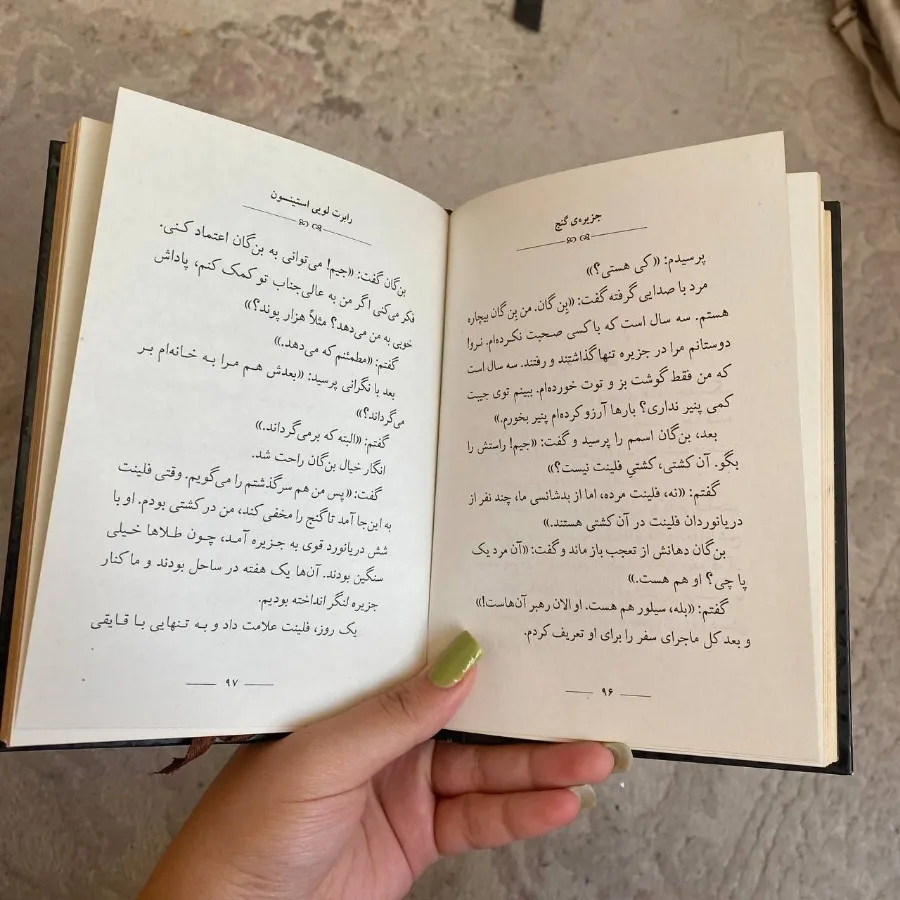 جزیره‌ی گنج
پرسیدم: «کی هستی؟»
مرد با صدایی گرفته گفت: «بِن گان. من بِن گان بیچاره
هستم. سه سال است که با کسی صحبت نکرده‌ام. نرو!
دوستانم مرا در جزیره تنها گذاشتند و رفتند. سه سال است
که من فقط گوشت بز و توت خورده‌ام. ببینم توی جیبت
کمی پنیر نداری؟ بارها آرزو کرده‌ام پنیر بخورم.»
بعد، بن‌گان اسمم را پرسید و گفت: «جیم! راستش را
بگو. آن کشتی، کشتیِ فلینت نیست؟»
گفتم: «نه، فلینت مرده، اما از بدشانسی ما، چند نفر از
دریانوردان فلینت در آن کشتی هستند.»
بن‌گان دهانش از تعجب باز ماند و گفت: «آن مرد یک
پا چی؟ او هم هست.»
گفتم: «بله، سیلور هم هست. او الان رهبر آن‌هاست!»
و بعد کل ماجرای سفر را برای او تعریف کردم.
۹۶
رابرت لویی استینسون
بن‌گان گفت: «جیم! می‌توانی به بن‌گان اعتماد کنی.
فکر می‌کنی اگر من به عالی‌جناب تو کمک کنم، پاداش
خوبی به من می‌دهد؟ مثلاً هزار پوند؟»
گفتم: «مطمئنم که می‌دهد.»
بعد با نگرانی پرسید: «بعدش هم مرا به خانه‌ام بر
می‌گرداند؟»
گفتم: «البته که برمی‌گرداند.»
انگار خیال بن‌گان راحت شد.
گفت: «پس من هم سرگذشتم را می‌گویم. وقتی فلینت
به این‌جا آمد تا گنج را مخفی کند، من در کشتی بودم. او با
شش دریانورد قوی به جزیره آمد، چون طلاها خیلی
سنگین بودند. آن‌ها یک هفته در ساحل بودند و ما کنار
جزیره لنگر انداخته بودیم.
یک روز، فلینت علامت داد و به تنهایی با قایقی
۹۷